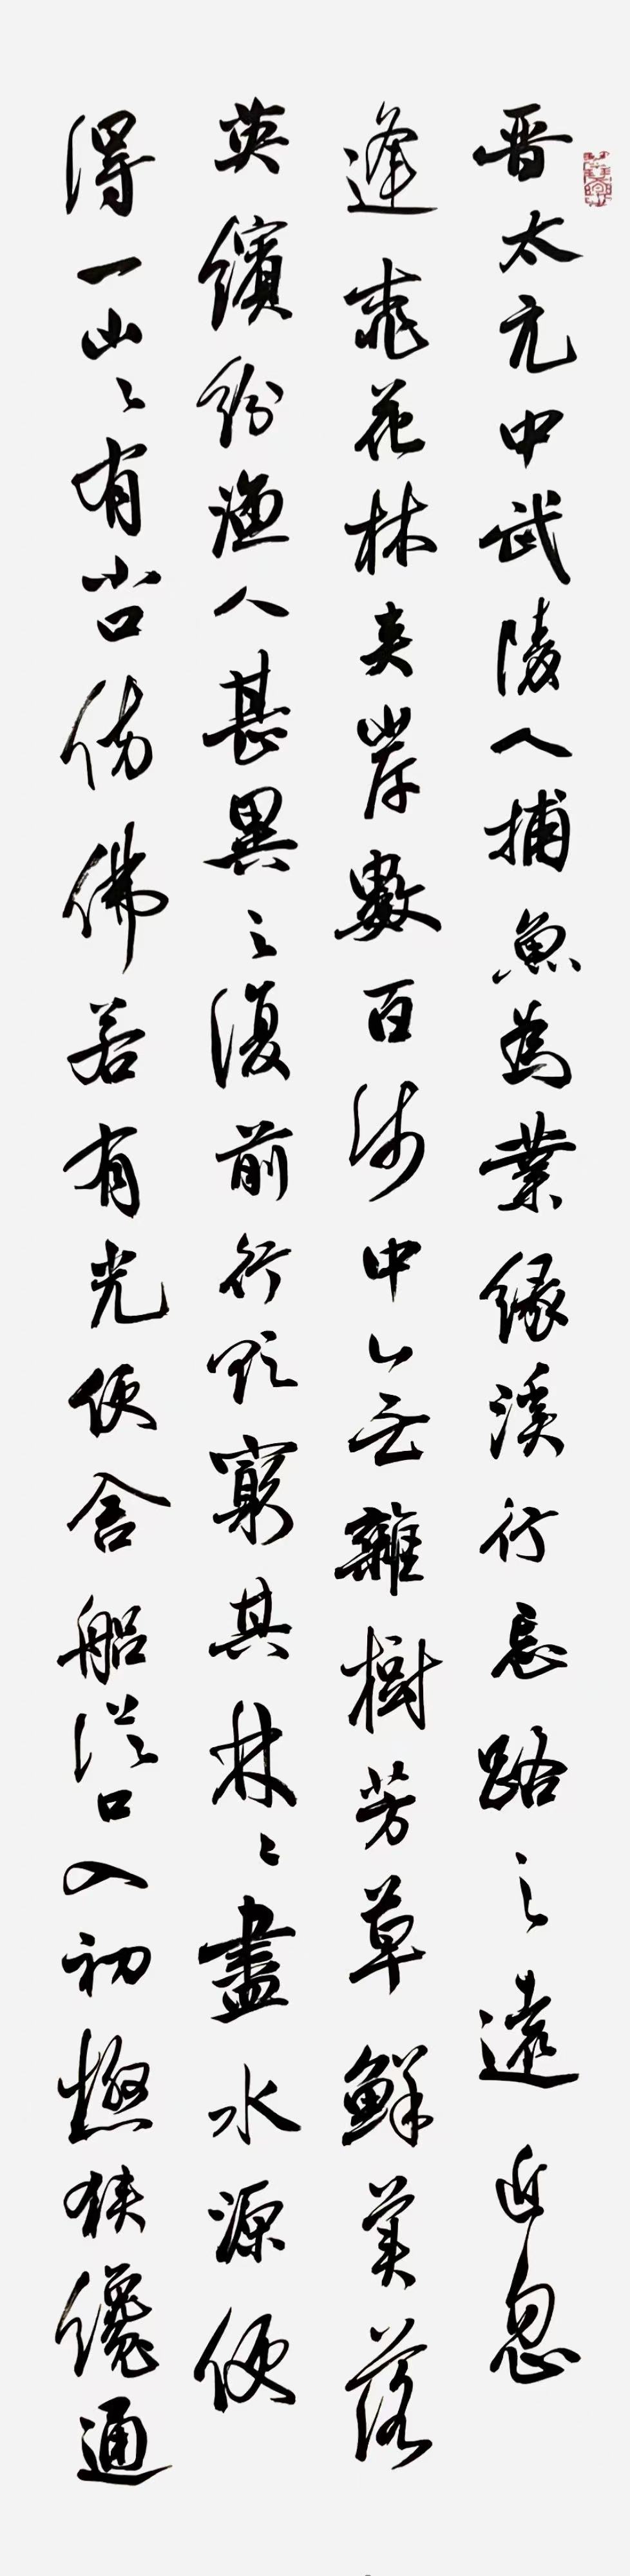 晋太元中武陵人捕魚為業緣溪行忘路之遠近忽
逢桃花林夾岸數百步中亦無雜樹芳草鮮美落
英繽紛漁人甚異之復前行欲窮其林〻盡水源便
得一山〻有小口仿佛若有光便舍船從口入初極狹纔通